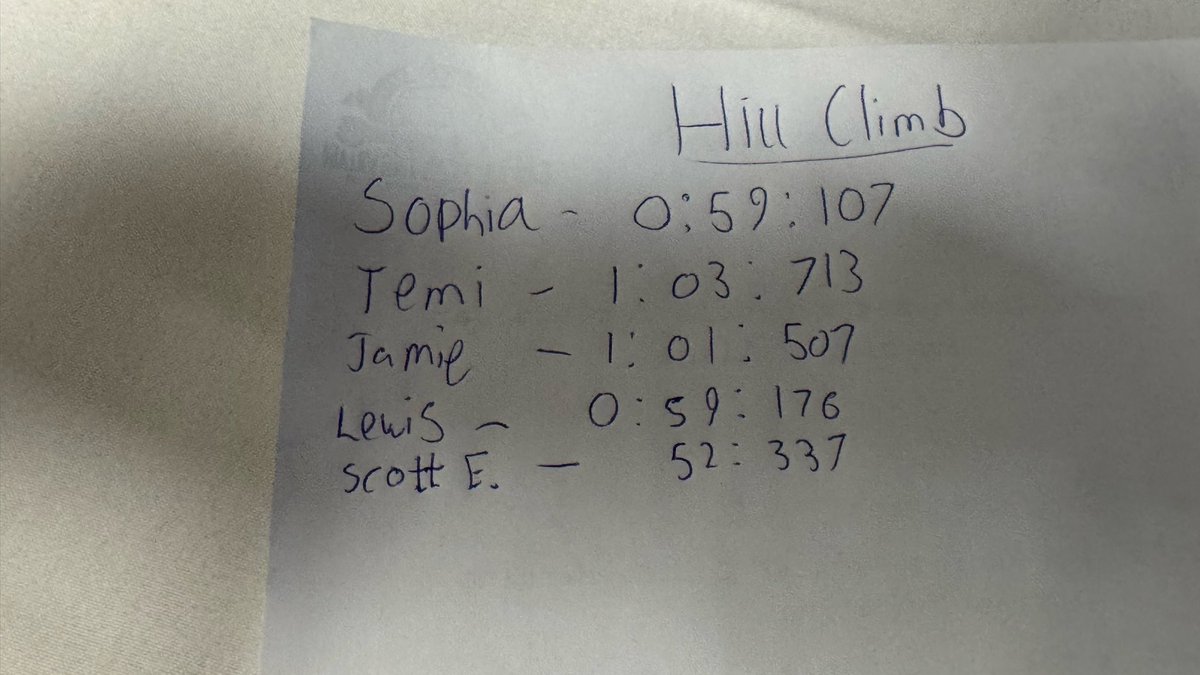 Hill Climb
Sophia - 0:59:107
Temi - 1:03:713
Jamie - 1:01:507
Lewis - 0:59:176
Scott E. - 52:337